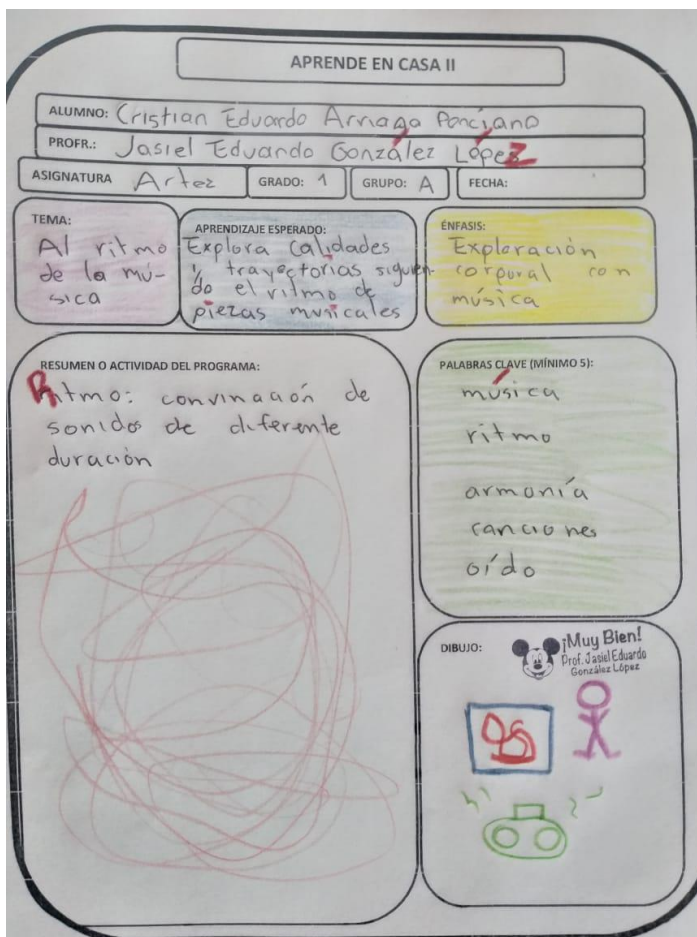 APRENDE EN CASA II
ALUMNO: Cristian Eduardo Arriaga Ponciano
PROFR.: Jasiel Eduardo González López
ASIGNATURA Artez GRADO: 1 GRUPO: A FECHA:
TEMA:
Al ritmo
de la mú-
sica
APRENDIZAJE ESPERADO:
Explora calidades
y trayectorias siguien-
do el ritmo de
piezas musicales
ÉNFASIS:
Exploración
corporal con
música
RESUMEN O ACTIVIDAD DEL PROGRAMA:
Ritmo: convinación de
sonidos de diferente
duración
PALABRAS CLAVE (MÍNIMO 5):
música
ritmo
armonía
canciones
oído
DIBUJO:
¡Muy Bien!
Prof. Jasiel Eduardo
González López